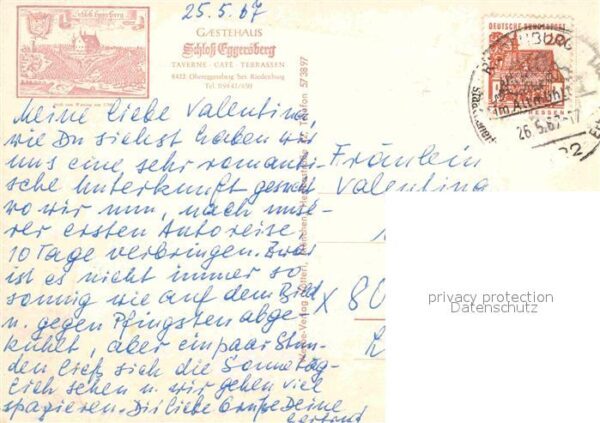 25.5.67
Schloß Eggersberg
GÆSTEHAUS
Schloß Eggersberg
TAVERNE · CAFÉ · TERRASSEN
8422 Obereggersberg bei Riedenburg
Tel. 09442/498
DEUTSCHE BUNDESPOST
RIEDENBURG
im Altmühltal
26.5.67-17
Meine liebe Valentina,
wie Du siehst haben wir
uns eine sehr romanti-
sche Unterkunft gesucht
wo wir nun, nach unse-
rer ersten Autoreise
10 Tage verbringen. Zwar
ist es nicht immer so
sonnig wie auf dem Bild
u. gegen Pfingsten abge
kühlt, aber ein paar Stun-
den ließ sich die Sonne täg-
lich sehen u. wir gehen viel
spazieren. Dir liebe Grüße Deine
Gertrud
Telefon 57 38 97
Fräulein
Valentina
X 80
privacy protection
Datenschutz